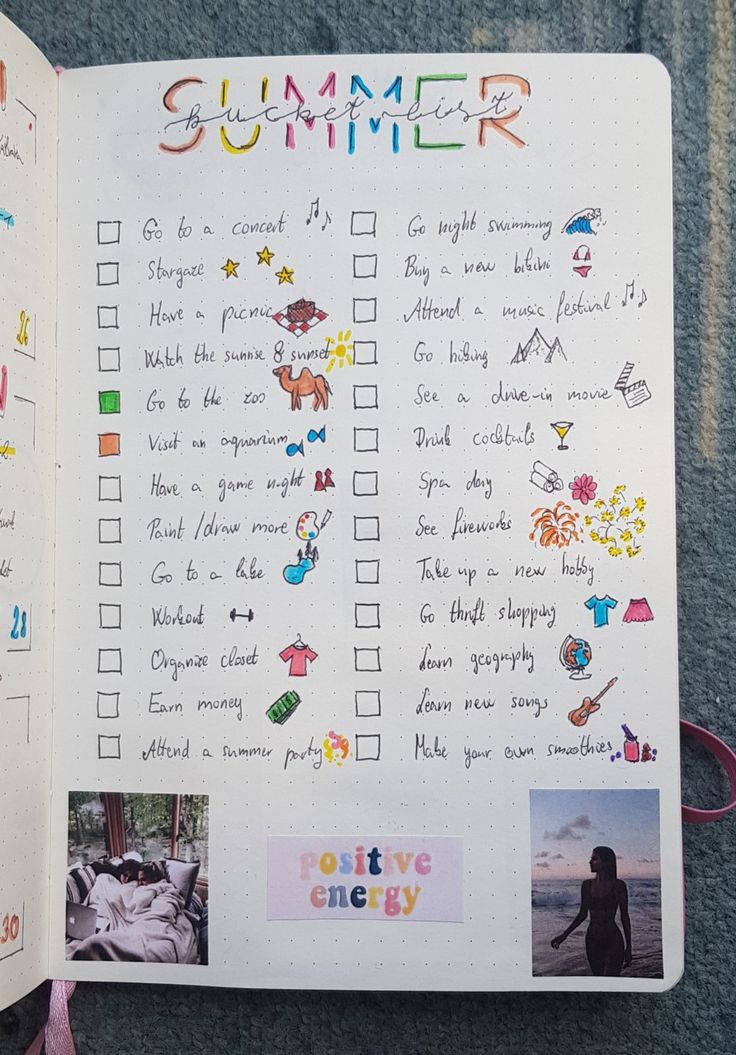 SUMMER
bucket list
Go to a concert
Stargaze
Have a picnic
Watch the sunrise & sunset
Go to the zoo
Visit an aquarium
Have a game night
Paint/draw more
Go to a lake
Workout
Organize closet
Earn money
Attend a summer party
Go night swimming
Buy a new bikini
Attend a music festival
Go hiking
See a drive-in movie
Drink cocktails
Spa day
See fireworks
Take up a new hobby
Go thrift shopping
Learn geography
Learn new songs
Make your own smoothies
positive
energy
26
28
30